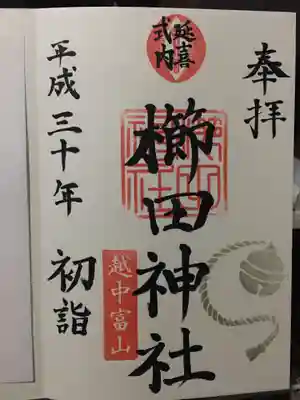 奉拝
延喜
式内
櫛田神社
越中富山
平成三十年 初詣